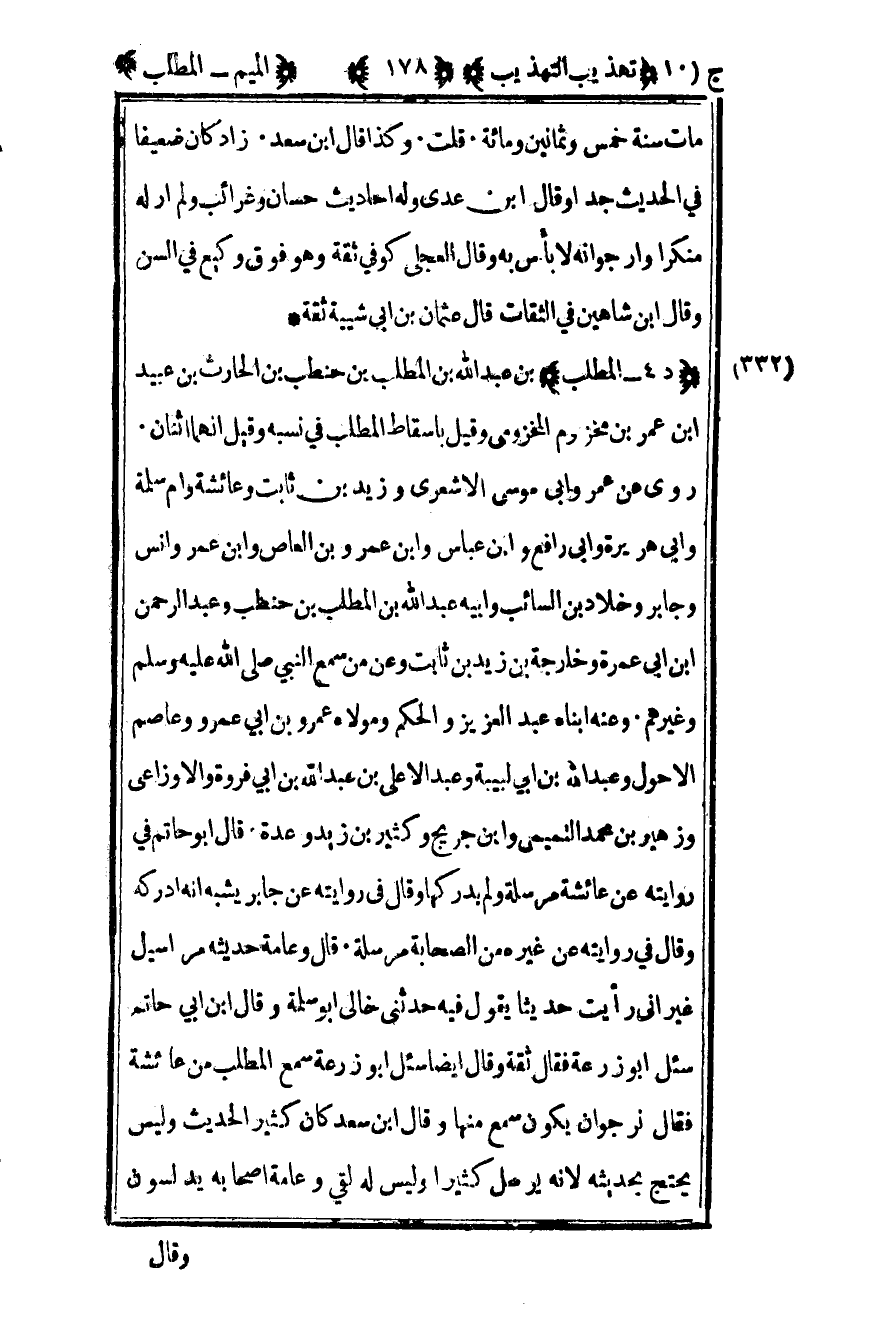 ج (١٠) ﴿تهذيب التهذيب﴾ ﴿١٧٨﴾ ﴿الميم ـ المطلب﴾
مات سنة خمس وثمانين ومائة ٠ قلت ٠ وكذا قال ابن سعد ٠ زاد كان ضعيفا
في الحديث جدا وقال ابن عدى وله احاديث حسان وغرائب ولم ار له
منكرا وارجو انه لا بأس به وقال العجلى كوفي ثقة وهو فوق وكيع في السن
وقال ابن شاهين في الثقات قال عثمان بن ابى شيبة ثقة *
(٣٣٢) ﴿د ٤ ـ المطلب﴾ بن عبدالله بن المطلب بن حنطب بن الحارث بن عبيد
ابن عمر بن مخزوم المخزومى وقيل باسقاط المطلب في نسبه وقيل انهما اثنان ٠
روى عن عمر وابى موسى الاشعرى وزيد بن ثابت وعائشة وام سلمة
وابي هريرة وابى رافع وابن عباس وابن عمرو بن العاص وابن عمر وانس
وجابر وخلاد بن السائب وابيه عبدالله بن المطلب بن حنطب وعبدالرحمن
ابن ابى عمرة وخارجة بن زيد بن ثابت وعن من سمع النبي صلى الله عليه وسلم
وغيرهم ٠ وعنه ابناه عبد العزيز والحكم ومولاه عمرو بن ابي عمرو وعاصم
الاحول وعبدالله بن ابي لبيبة وعبدالاعلى بن عبدالله بن ابي فروة والاوزاعى
وزهير بن محمد التميمى وابن جريج وكثير بن زيد وعدة ٠ قال ابو حاتم في
روايته عن عائشة مرسلة ولم يدركها وقال فى روايته عن جابر يشبه انه ادركه
وقال في روايته عن غيره من الصحابة مرسلة ٠ قال وعامة حديثه مراسيل
غير انى رأيت حديثا يقول فيه حدثنى خالى ابو سلمة وقال ابن ابي حاتم
سئل ابو زرعة فقال ثقة وقال ايضا سئل ابو زرعة سمع المطلب من عائشة
فقال نرجو ان يكون سمع منها وقال ابن سعد كان كثير الحديث وليس
يحتج بحديثه لانه يرسل كثيرا وليس له لقي وعامة اصحابه يدلسون
وقال